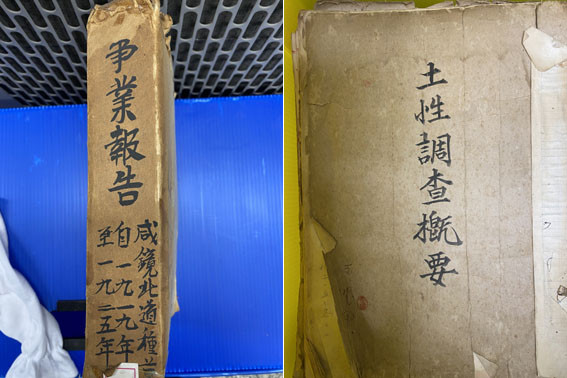 事業報告
咸鏡北道種
自一九一九年
至一九二五年
土性調査概要